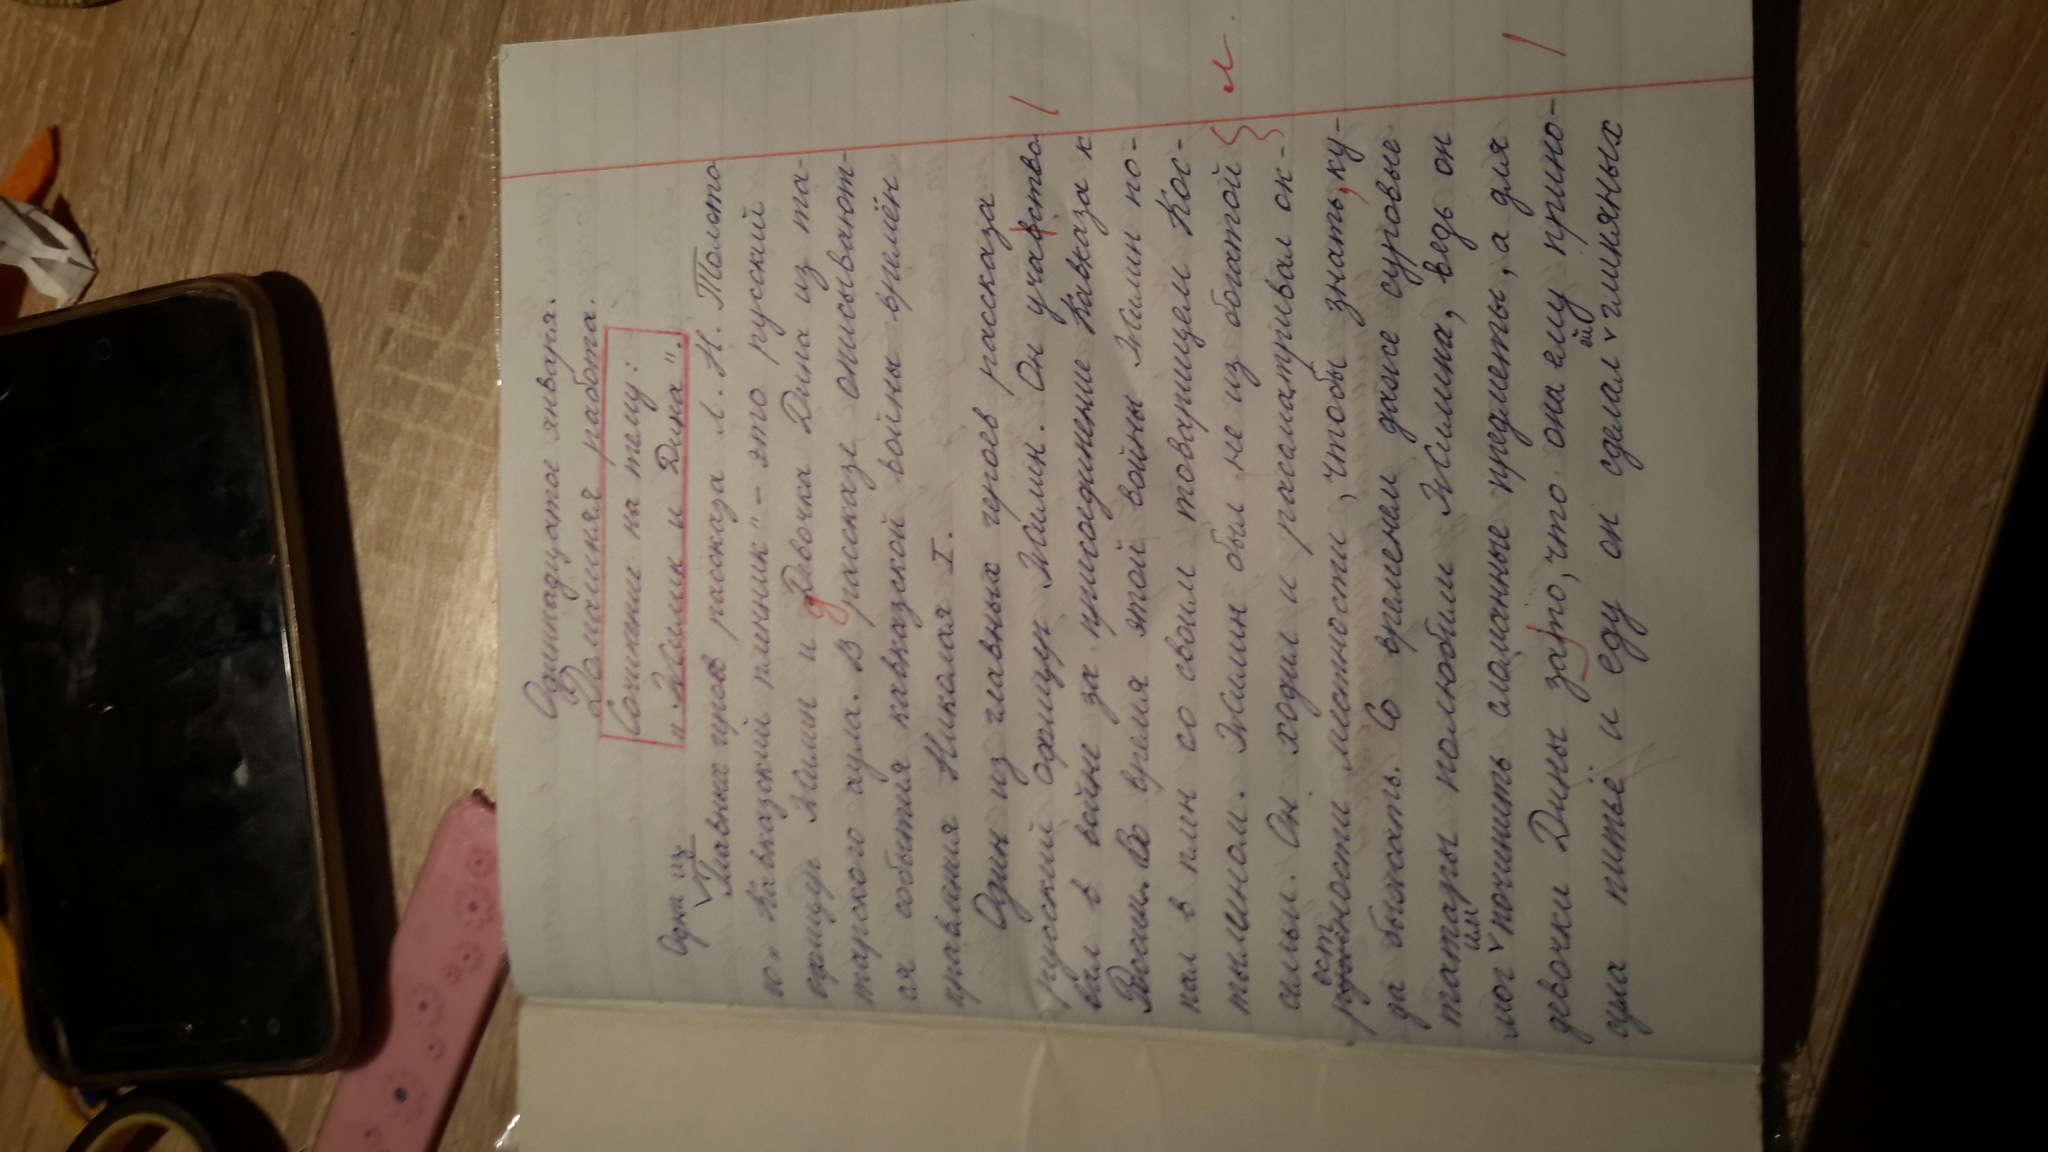 Одиннадцатое января.
Домашняя работа.
Сочинение на тему:
„Жилин и Дина".
Одни из
Главных героев рассказа Л. Н. Толсто
го „Кавказский пленник" - это русский
офицер Жилин и девочка Дина из та-
тарского аула. В рассказе описывают-
ся события кавказской войны времён
правления Николая I.
Один из главных героев рассказа
русский офицер Жилин. Он учавство
вал в войне за присоединение Кавказа к
России. Во время этой войны Жилин по-
пал в плен со своим товарищем Кос-
тылиным. Жилин был не из богатой
семьи. Он ходил и рассматривал ок-
рестности местности, чтобы знать, ку-
да бежать. Со временем даже суровые
татары полюбили Жилина, ведь он
мог им починить сломанные предметы, а для
девочки Дины зато, что она ему прино-
сила питьё и еду он сделал ей глиняных